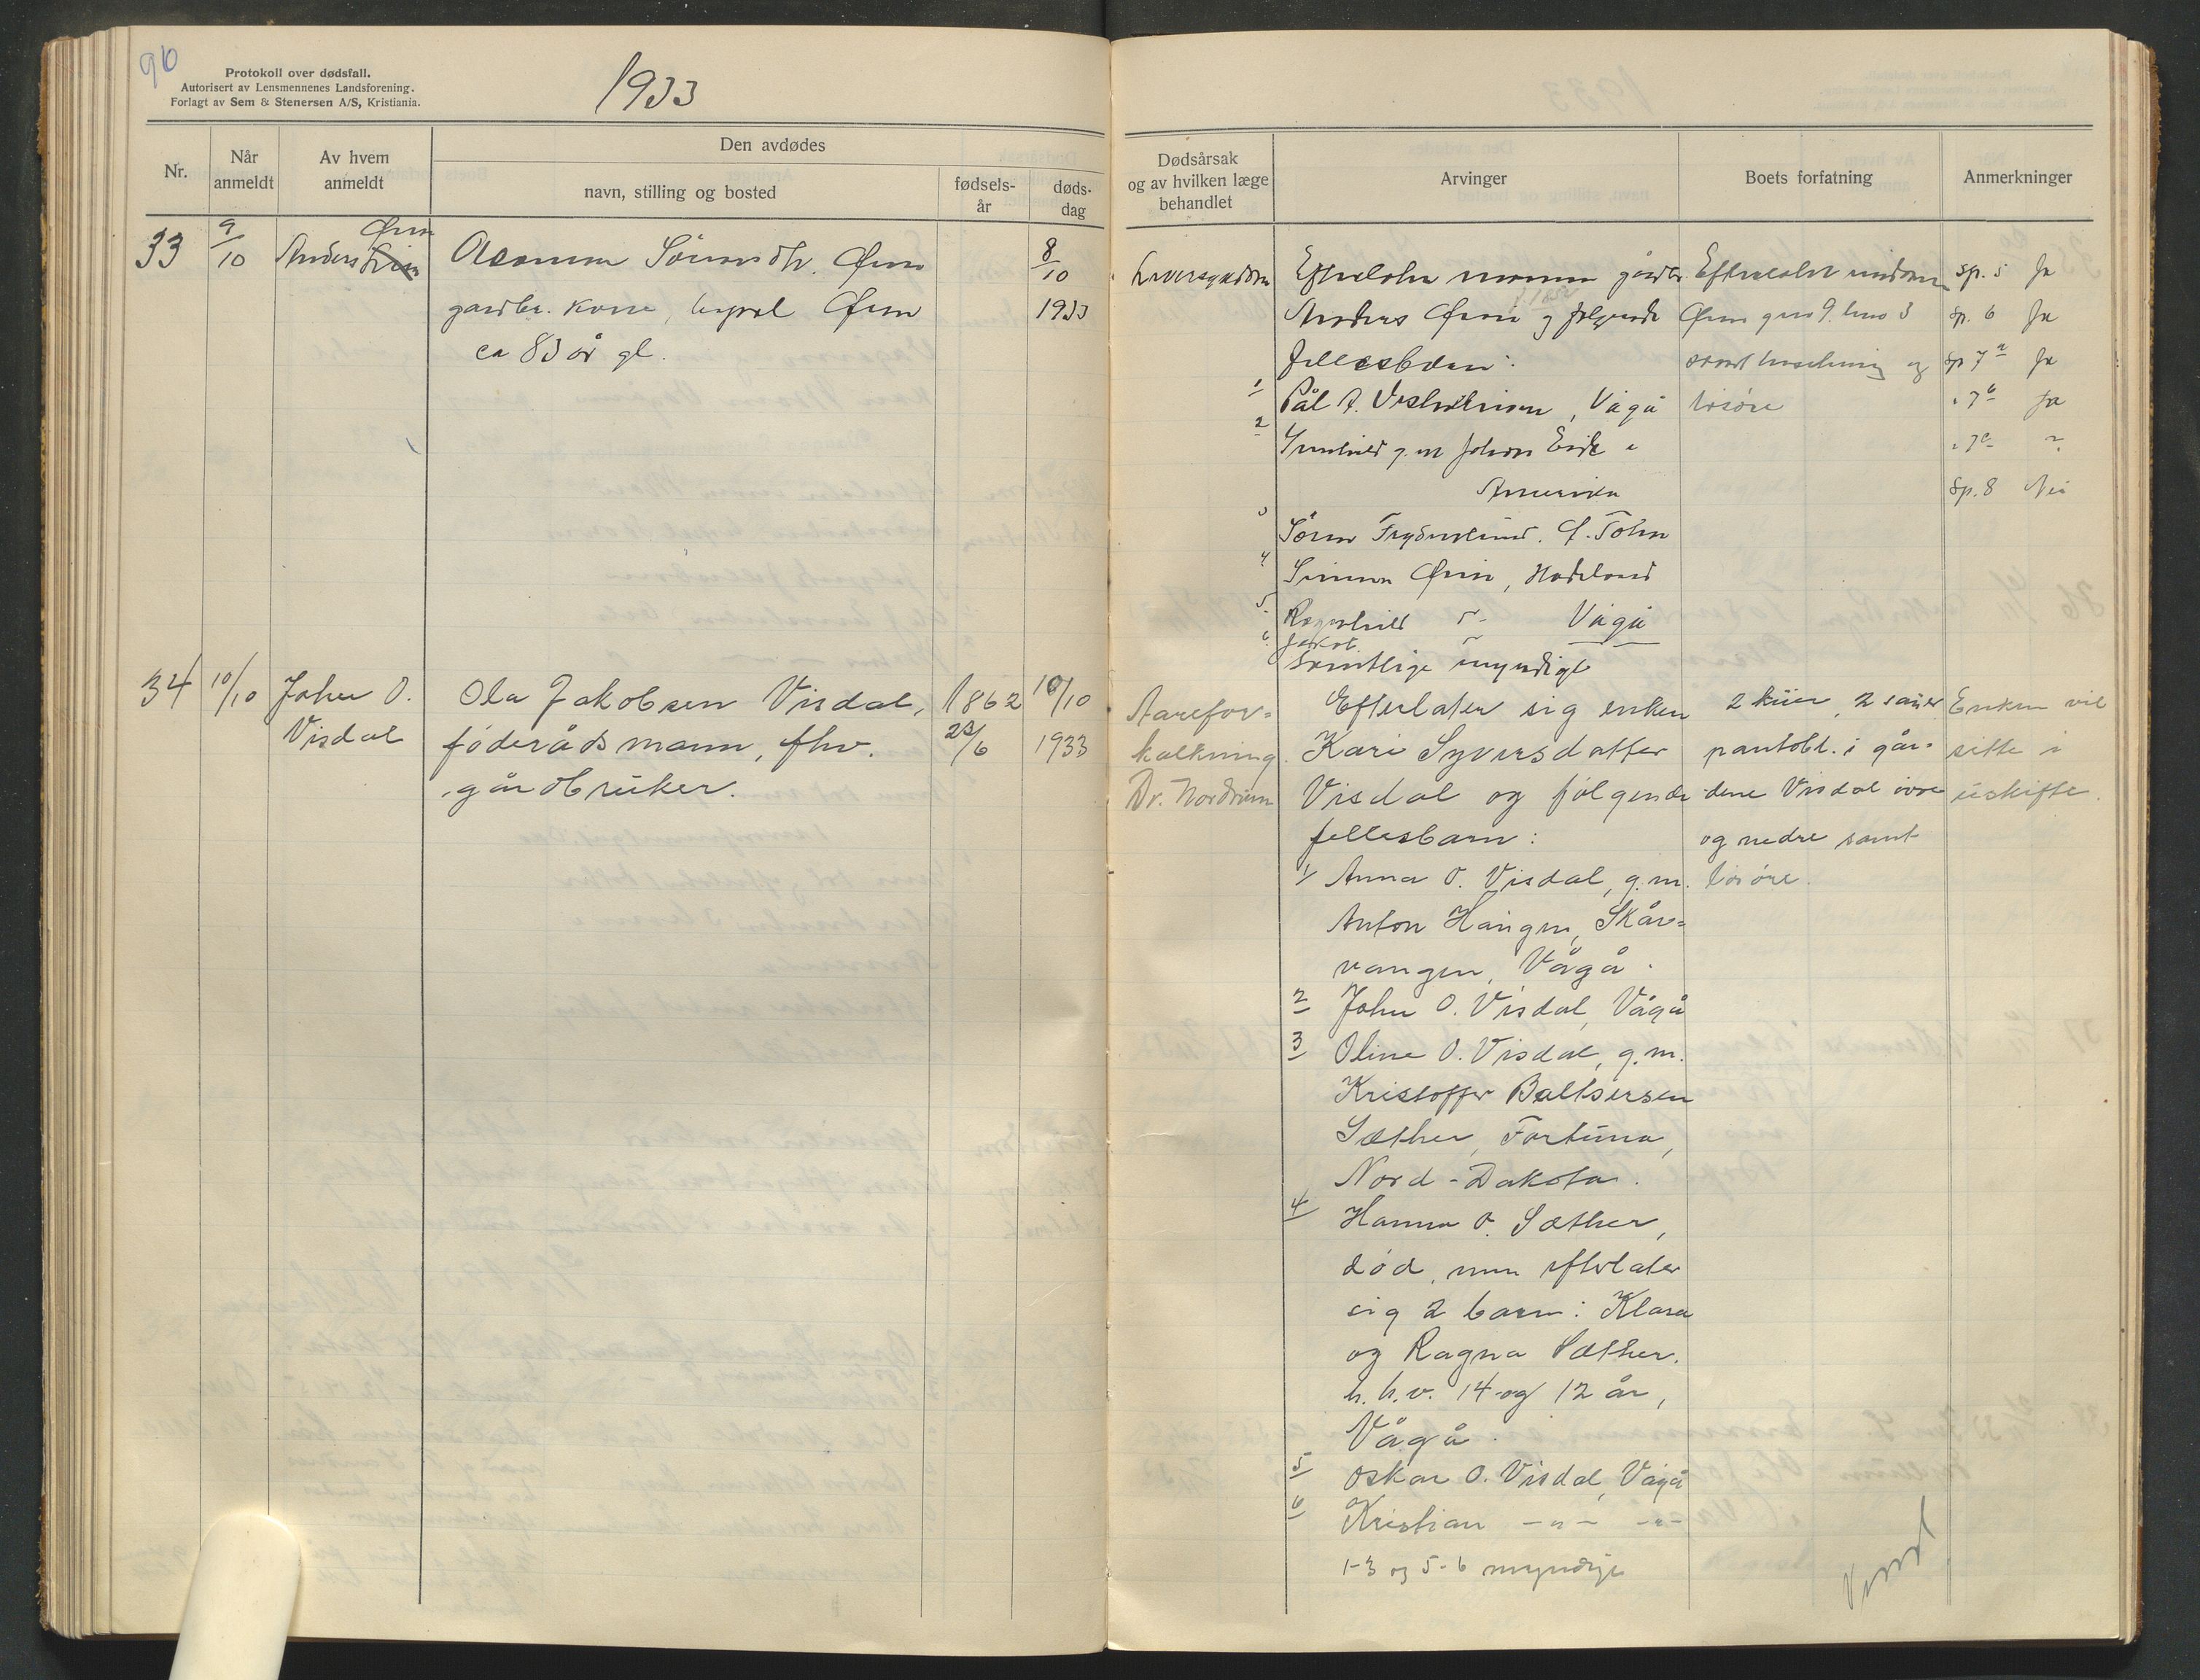 90
Protokoll over dødsfall.
Autorisert av Lensmennenes Landsforening.
Forlagt av Sem & Stenersen A/S, Kristiania.
1933
Nr.
Når anmeldt
Av hvem anmeldt
Den avdødes
navn, stilling og bosted
fødsels-år
døds-dag
Dødsårsak og av hvilken læge behandlet
Arvinger
Boets forfatning
Anmerkninger
33
9/10
Anders Øvin
Øvin
gardbr. kone,
ca 83 år gl.
8/10
1933
Efterlater mann gårdbr.
Anders Øvin og følgende
fellesbarn:
1 Pål A. Vågå
2 g. m Johan
Amerika
3 Søren
4 Simen Øvin, Hadeland
5 Ragnhild Vågå
6. Jakob
Samtlige myndige
Efterlatt
Øvin gno 9. bno 3
samt og
løsøre
sp. 5 Ja
sp. 6 Ja
sp 7 a Ja
" 7 b Ja
" 7 c ?
Sp. 8 Nei
34
10/10
John O.
Visdal
Ola Jakobsen Visdal,
føderådsmann, fhv.
gårdbruker.
1862
23/6
10/10
1933
Aarefor-
kalkning.
Dr. Nordrum
Efterlater sig enken
Kari Syversdatter
Visdal og følgende
fellesbarn:
1 Anna O. Visdal, g.m.
Anton Haugen, Skår-
vangen, Vågå.
2 John O. Visdal, Vågå
3 Oline O. Visdal, g.m.
Kristoffer Baltsersen
Sæther, Fortuna,
Nord-Dakota.
4 Hanna O. Sæther,
død, men efterlater
sig 2 barn: Klara
og Ragna Sæther.
h.h.v. 14 og 12 år,
Vågå.
5 Oskar O. Visdal, Vågå
6 Kristian -"- -"-
1-3 og 5-6 myndige
2 kuer, 2 sauer
pantobl. i går-
dene Visdal øvre
og nedre samt
løsøre.
Enken vil
sitte i
uskifte.